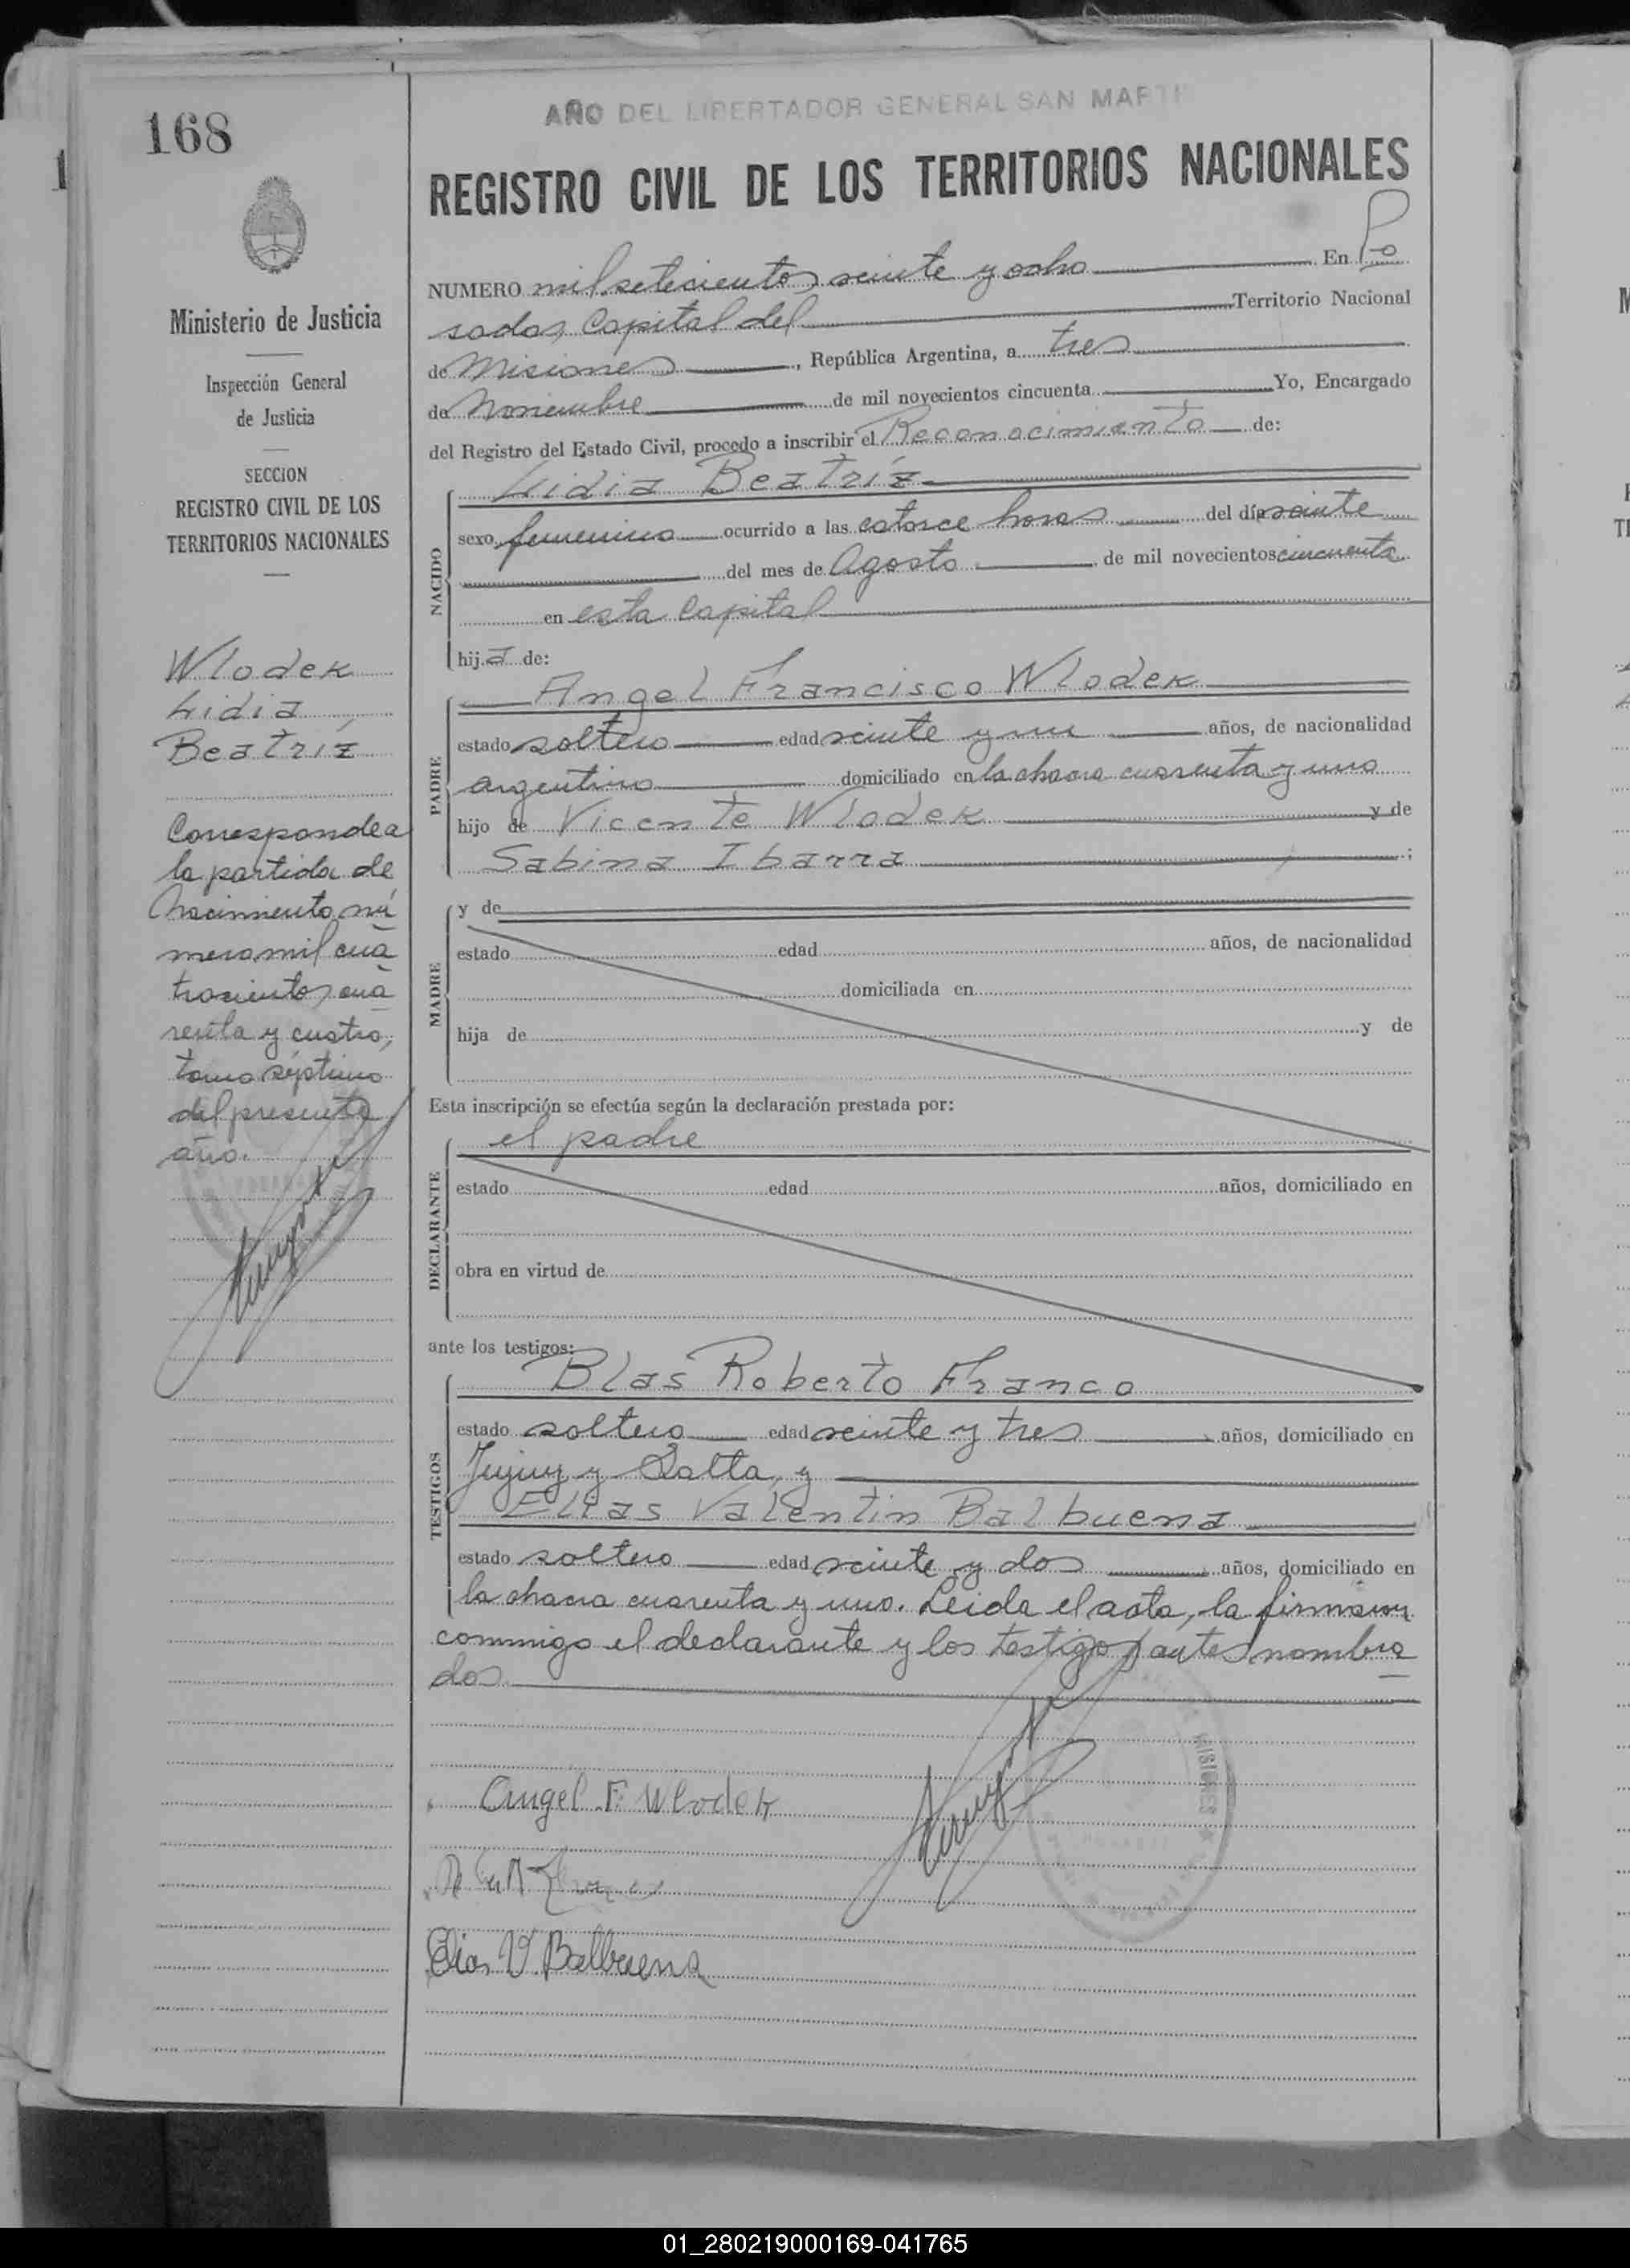 168
Ministerio de Justicia
Inspección General
de Justicia
SECCION
REGISTRO CIVIL DE LOS
TERRITORIOS NACIONALES
Wlodek
Lidia
Beatríz
Corresponde a
la partida de
Nacimiento nú
mero mil cua
trocientos cua
renta y cuatro,
tomo séptimo
del presente
año.
AÑO DEL LIBERTADOR GENERAL SAN MARTI
REGISTRO CIVIL DE LOS TERRITORIOS NACIONALES
NUMERO mil setecientos veinte y ocho En Po
sadas, Capital del Territorio Nacional
de Misiones, República Argentina, a tres
de Noviembre de mil novecientos cincuenta Yo, Encargado
del Registro del Estado Civil, procedo a inscribir el Reconocimiento de:
NACIDO
Lidia Beatríz
sexo femenino ocurrido a las catorce horas del día veinte
del mes de Agosto de mil novecientos cincuenta
en esta Capital
hija de:
PADRE
Angel Francisco Wlodek
estado soltero edad veinte y un años, de nacionalidad
argentino domiciliado en la chacra cuarenta y uno
hijo de Vicente Wlodek y de
Sabina Ibarra ;
MADRE
y de
estado edad años, de nacionalidad
domiciliada en
hija de y de
Esta inscripción se efectúa según la declaración prestada por:
DECLARANTE
el padre
estado edad años, domiciliado en
obra en virtud de
ante los testigos:
TESTIGOS
Blas Roberto Franco
estado soltero edad veinte y tres años, domiciliado en
Jujuy y Salta, y
Elias Valentin Balbuena
estado soltero edad veinte y dos años, domiciliado en
la chacra cuarenta y uno. Leida el acta, la firmaron
conmigo el declarante y los testigos antes nombra
dos.
MISIONES
Angel F. Wlodek
Elias V. Balbuena
01_280219000169-041765